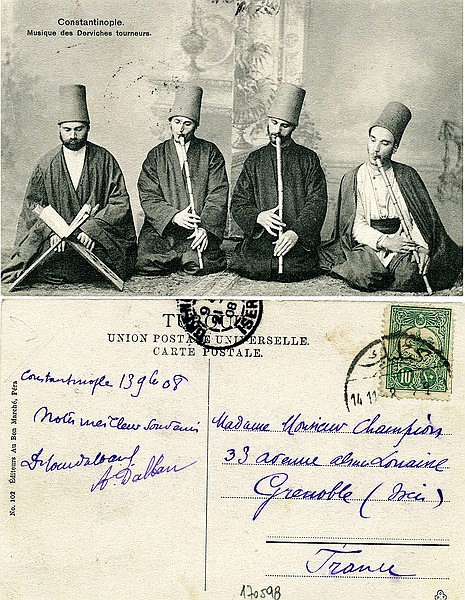 Constantinople.
Musique des Derviches tourneurs.
TURQUIE
UNION POSTALE UNIVERSELLE.
CARTE POSTALE.
No. 102 Éditeurs Au Bon Marché, Péra
Constantinople 13 9bre 08
Notre meilleur souvenir
A Dalban
Madame Monsieur Champion
33 avenue alsace Lorraine
Grenoble (Isère)
France
ISÈRE
21
08
10
14 11
17059B